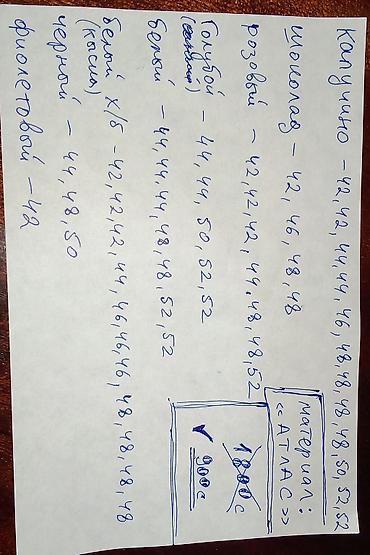 капучино – 42, 42, 44, 44, 46, 48, 48, 48, 48, 50, 52, 52
шоколад – 42, 46, 48, 48
розовый – 42, 42, 42, 44, 48, 48, 52
Голубой – 44, 44, 50, 52, 52
белый – 44, 44, 44, 48, 48, 52, 52
белый х/б – 42, 42, 42, 44, 46, 46, 46, 48, 48, 48, 48
(кысма)
черный – 44, 48, 50
фиолетовый – 42
материал:
«АТЛАС»
1800 с
✓ 900 с